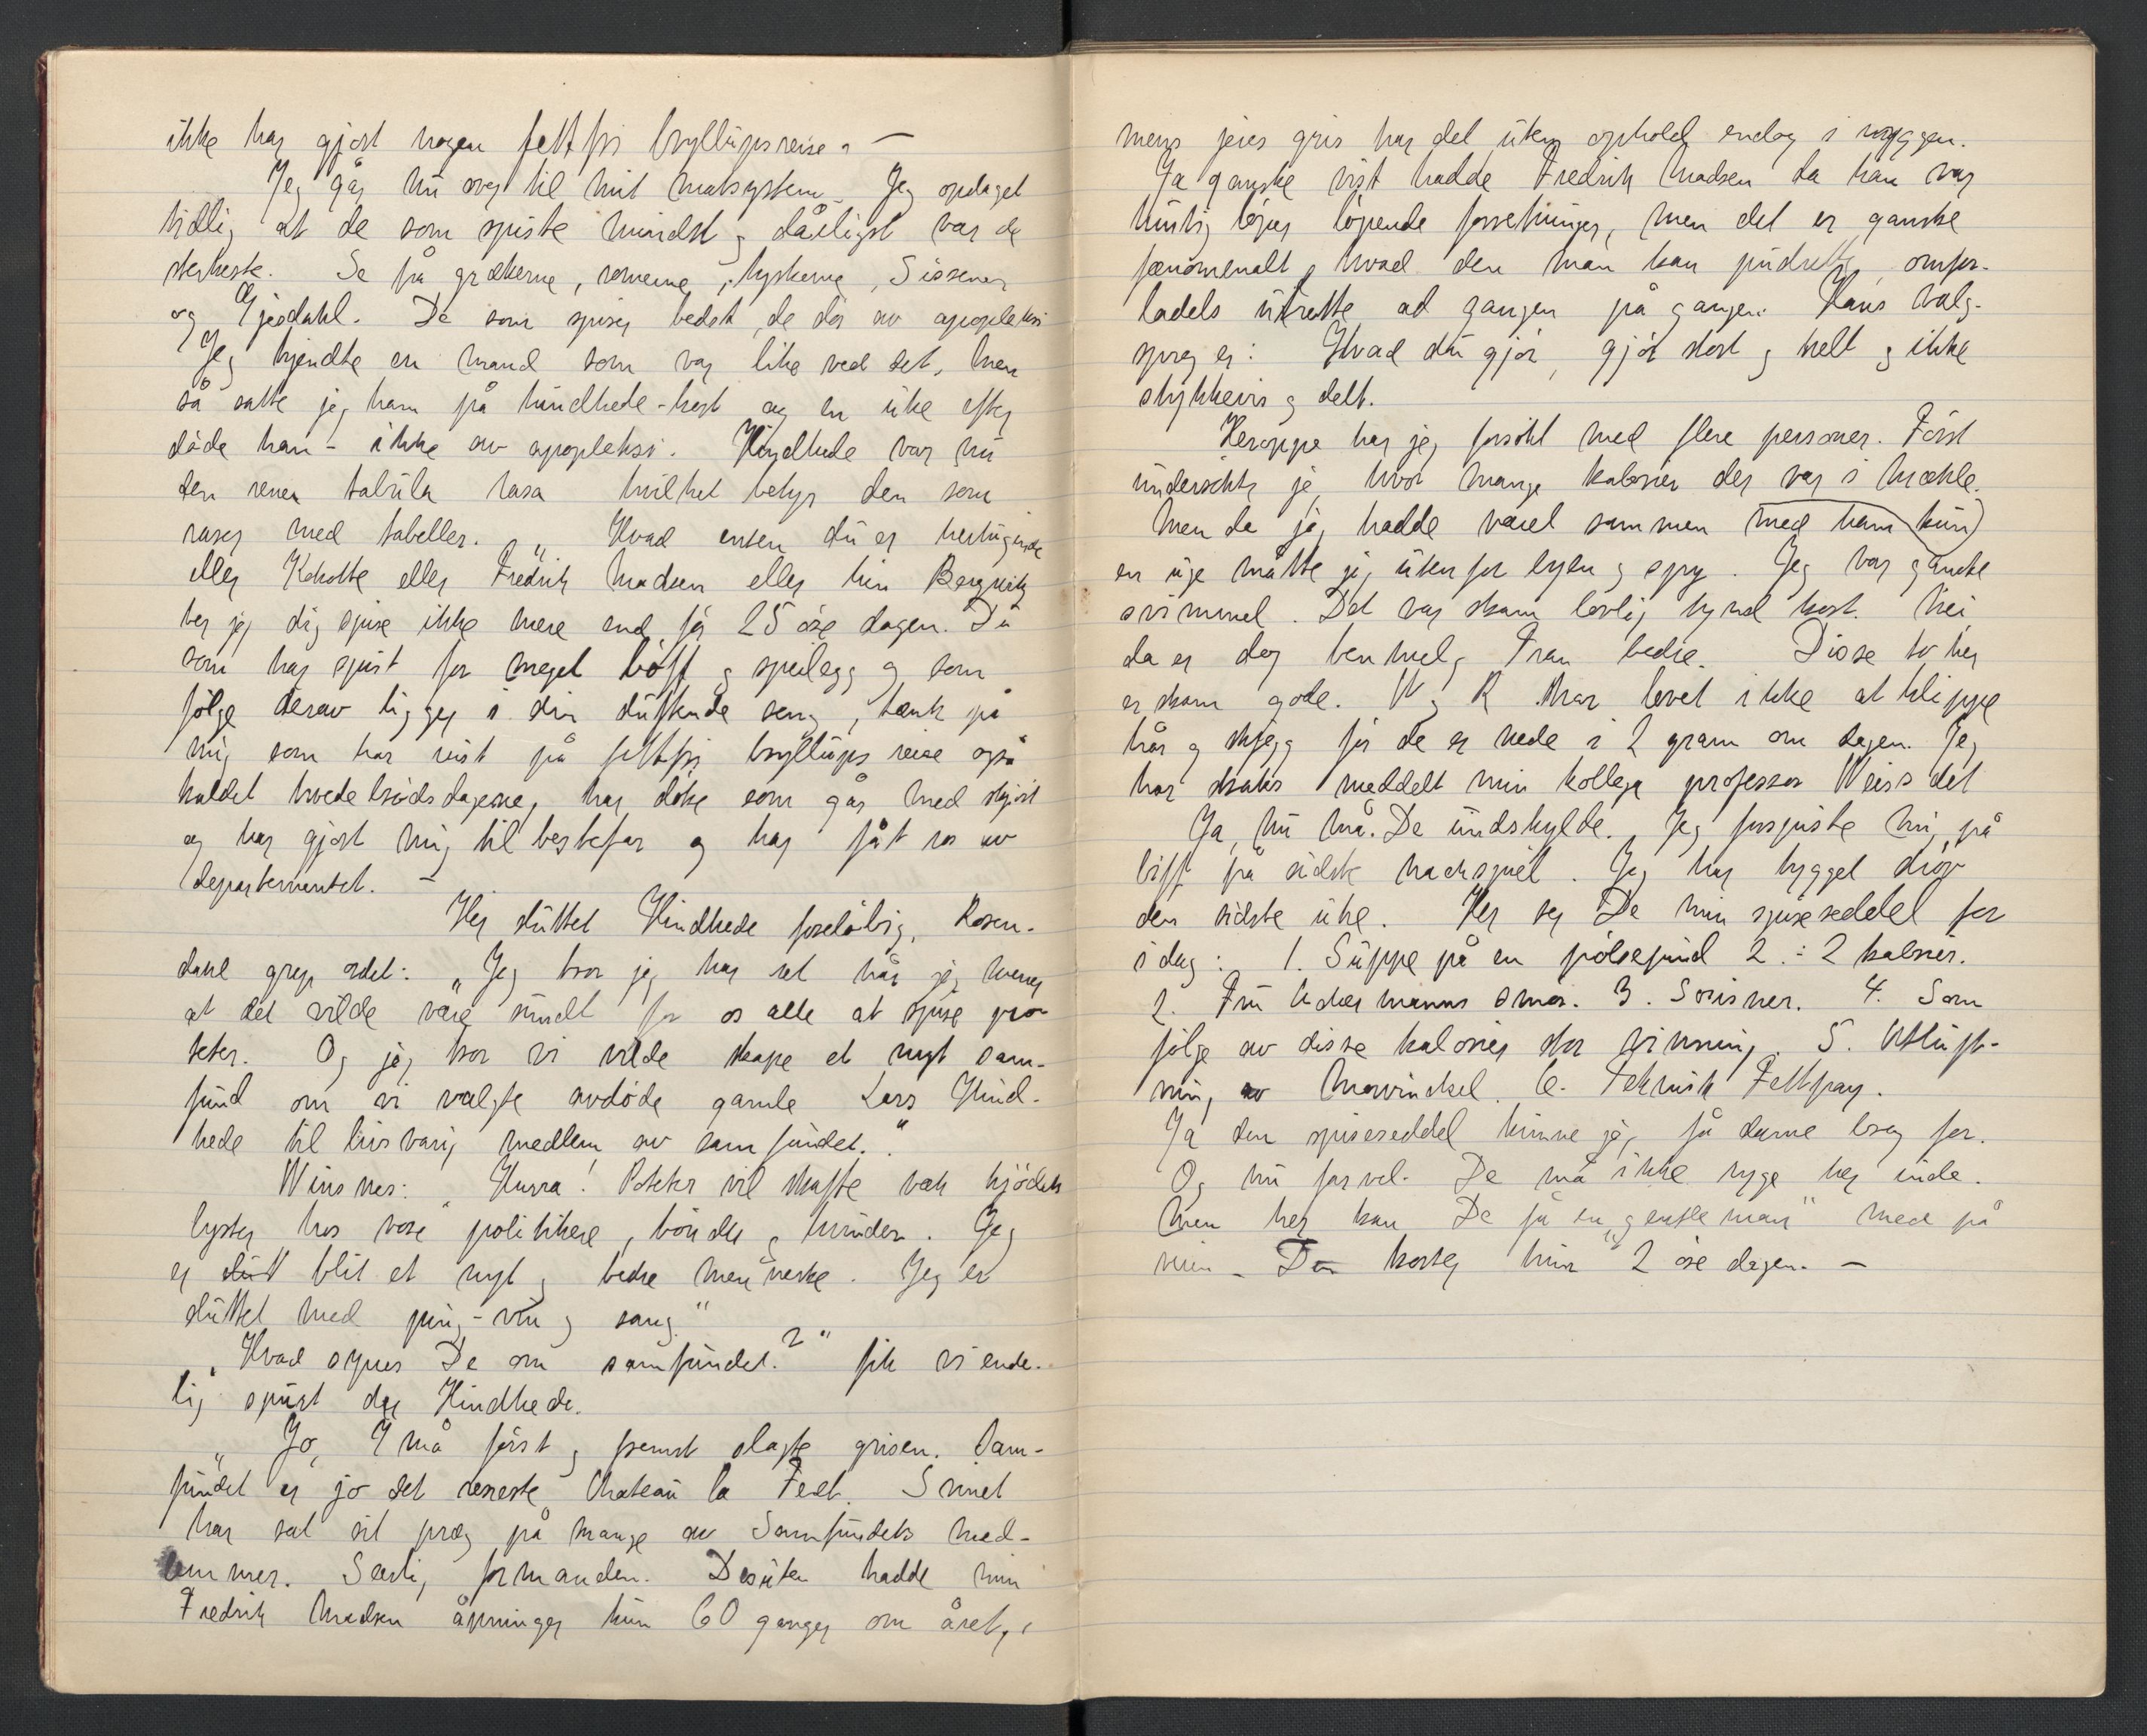 ikke har gjort nogen fettfri bryllupsreise. —
Jeg går nu over til mit matsystem. Jeg opdaget
tidlig at de som spiste mindst og dårligst var de
sterkeste. Se på grækerne, romerne, tyskerne, Sissener
og Gjesdahl. De som spiser bedst, de dør av apopleksi
Jeg kjendte en mand som var like ved det, men
så satte jeg ham på hindhede-kost og en uke efter
døde han – ikke av apopleksi. Hindhede var nu
den rene tabula rasa hvilket betyr den som
raser med tabeller. „Hvad enten du er hertuginde
eller Kokotte eller Fredrik Madsen eller hin Bergwitz
ber jeg dig spise ikke mere end for 25 øre dagen. Du
som har spist for meget böff og speilegg og som
følge derav ligger i din duftende seng, tænk på
mig som har reist på fettfri bryllups reise også
kaldet hvedebrødsdagene, har døtre som går med skjørt
og har gjort mig til bestefar og har fåt ros av
departementet. –
Her sluttet Hindhede foreløbig. Rosen-
dahl grep ordet: „Jeg tror jeg har ret når jeg mener
at det vilde være sundt for os alle at spise po-
teter. Og jeg tror vi vilde skape et nyt sam-
fund om vi valgte avdøde gamle Lars Hind-
hede til livsvarig medlem av samfundet."
Winsnes: „Hurra! Poteter vil skaffe væk kjødets
lyster hos vore politikere, bönder og hunder. Jeg
er blit et nyt og bedre menneske. Jeg er
sluttet med pung-vin og sang."
„Hvad synes De om samfundet?" fik vi ende-
lig spurt der Hindhede.
„Jo, I må først og fremst slagte grisen. Sam-
fundet er jo det reneste Chateau la Fedt. Svinet
har sat sit præg på mange av Samfundets med-
lemmer. Særlig formanden. Desuten hadde min
Fredrik Madsen åpninger kun 60 ganger om året,
mens jeres gris har det uten ophold endog i væggen.
Ja ganske vist hadde Fredrik Madsen da han var
hurtig løper løpende forretninger, men det er ganske
fænomenalt, hvad den man kan omfor-
ladels utrette ad gangen på gangen. Hans valg-
sprog er: Hvad du gjør, gjør stort og helt og ikke
stykkevis og delt.
Heroppe har jeg forsøkt med flere personer. Först
undersøkte jeg hvor mange kalorier der var i Mæhle.
Men da jeg hadde været sammen med ham kun
en uge måtte jeg utenfor byen og spy. Jeg var ganske
svimmel. Det var skam lovlig tynd kost. Nei
da er der benmel og Tran bedre. Disse to her
er skam gode. W og R har lovet ikke at klippe
hår og skjegg før de er nede i 2 gram om dagen. Jeg
har straks meddelt min kollega professor Weiss det
Ja, nu må De undskylde. Jeg forspiste mig på
biff på sidste nachspiel. Jeg har tygget drøv
den sidste uke. Her ser De min spiseseddel for
idag: 1. Suppe på en pølsepind 2 : 2 kalorier.
2. Fru Uchermanns smør. 3. Sviskner. 4. Som
følge av disse kalorier stor vinning. 5. Utluft-
ning av Mowinckel. 6. Teknisk Fettfray.
Ja den spiseseddel kunne jeg få dame brev for.
Og nu farvel. De må ikke ryge her inde.
Men her kan De få en „gentleman" med på
veien – Den koster kun 2 øre dagen. —